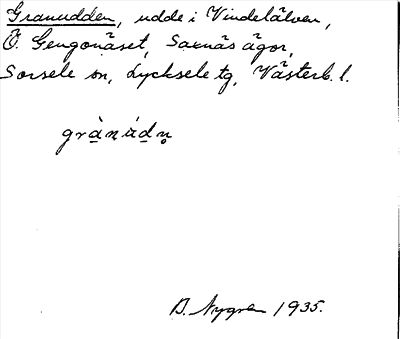 Granudden, udde i Vindelälven,
Ö. Gengonäset, Saxnäs ägor,
Sorsele sn, Lycksele tg, Västerb. l.
grànúdn̥
B. Nygren 1935.